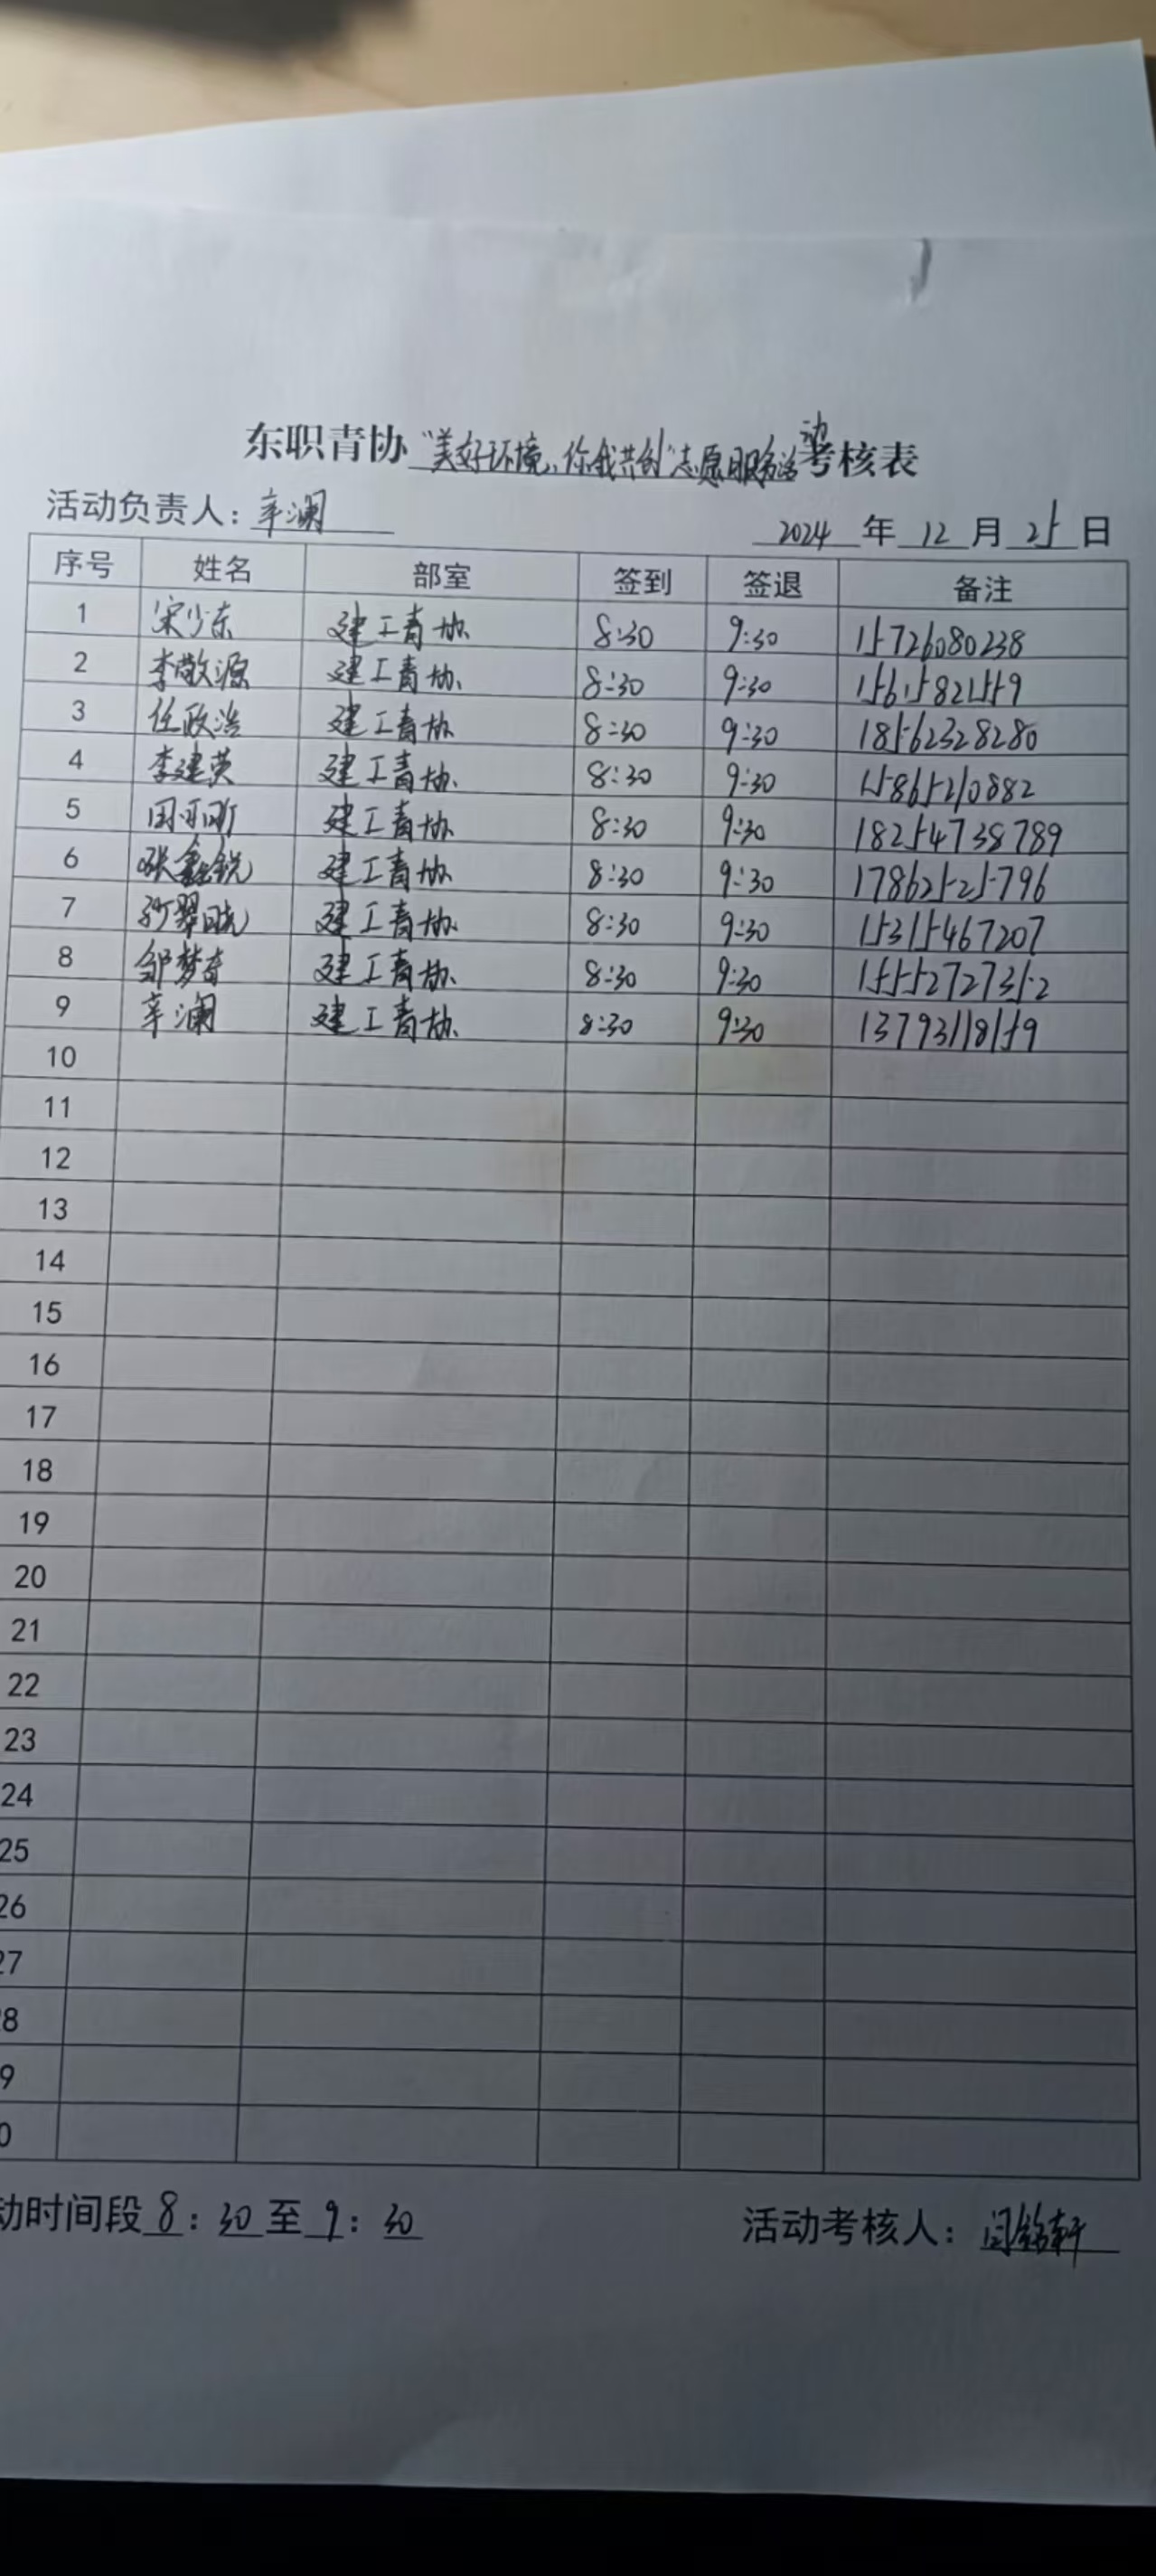 东职青协“美好环境、你我共创”志愿服务活动考核表
活动负责人：辛澜 2024 年 12 月 25 日
序号 姓名 部室 签到 签退 备注
1 宋少东 建工青协 8:30 9:30 15726080238
2 李敬源 建工青协 8:30 9:30 15615821559
3 任政浩 建工青协 8:30 9:30 18562328280
4 李建英 建工青协 8:30 9:30 15865210882
5 建工青协 8:30 9:30 18254738789
6 张鑫锐 建工青协 8:30 9:30 17862525796
7 孙翠晓 建工青协 8:30 9:30 15315467207
8 邹梦奇 建工青协 8:30 9:30 15552727352
9 辛澜 建工青协 8:30 9:30 13793118159
10
11
12
13
14
15
16
17
18
19
20
21
22
23
24
25
26
27
8
9
0
动时间段 8：30 至 9：30 活动考核人：闫铭轩